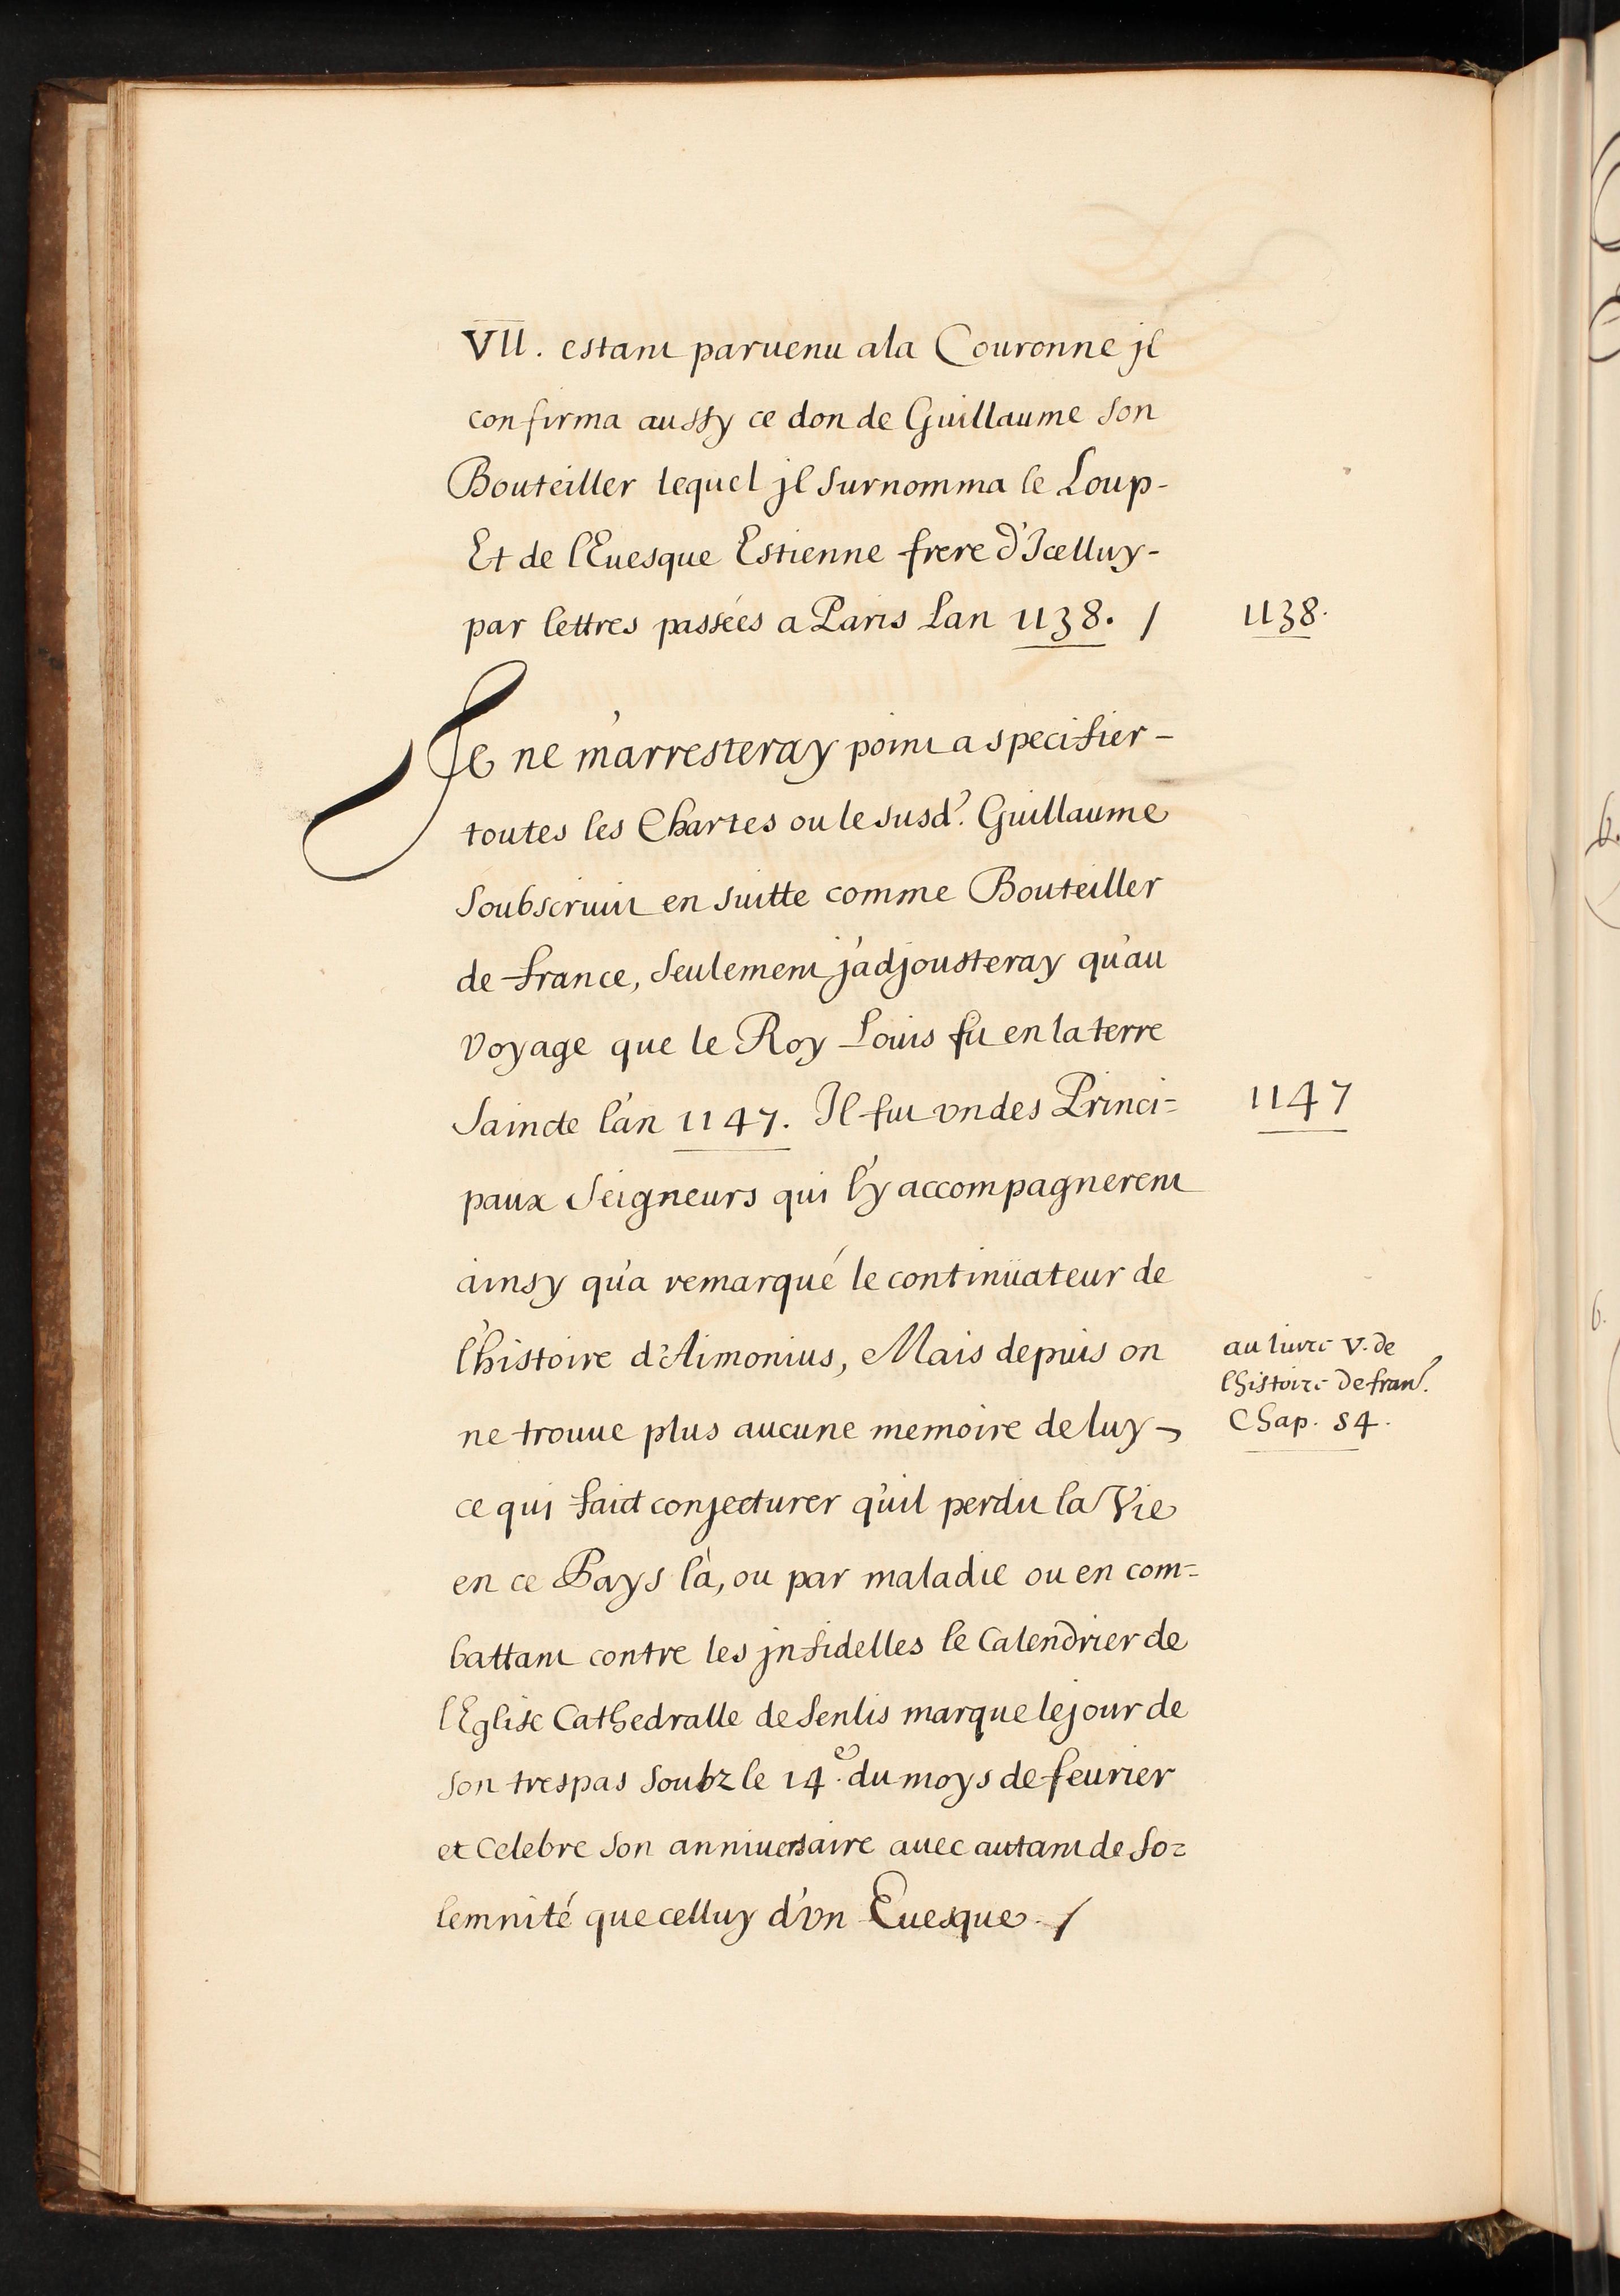 VII. estant paruenu ala Couronne jl
confirma aussy ce don de Guillaume son
Bouteiller lequel jl surnomma le Loup-
Et de l'Euesque Estienne frere d'Icelluy-
par lettres passées a Paris Lan 1138. /
1138.
Je ne m'arresteray point a specifier-
toutes les Chartes ou le susd.t Guillaume
soubscriuit en suitte comme Bouteiller
de france, seulement j'adjousteray qu'au
voyage que le Roy Louis fit en la terre
saincte l'an 1147. Il fut vn des Princi=
1147
paux seigneurs qui l'y accompagnerent
ainsy qu'a remarqué le continüateur de
l'histoire d'Aimonius, Mais depuis on
au liure V. de
lhistoire de fran.
Chap. 54.
ne trouue plus aucune memoire de luy-
ce qui faict conjecturer qu'il perdit la Vie
en ce Pays là, ou par maladie ou en com=
battant contre les jnfidelles le Calendrier de
l'Eglise Cathedralle de Senlis marque le jour de
son trespas soubz le 14.e du moys de feurier
et Celebre son anniuersaire auec autant de so=
lemnité que celluy d'vn Euesque. /